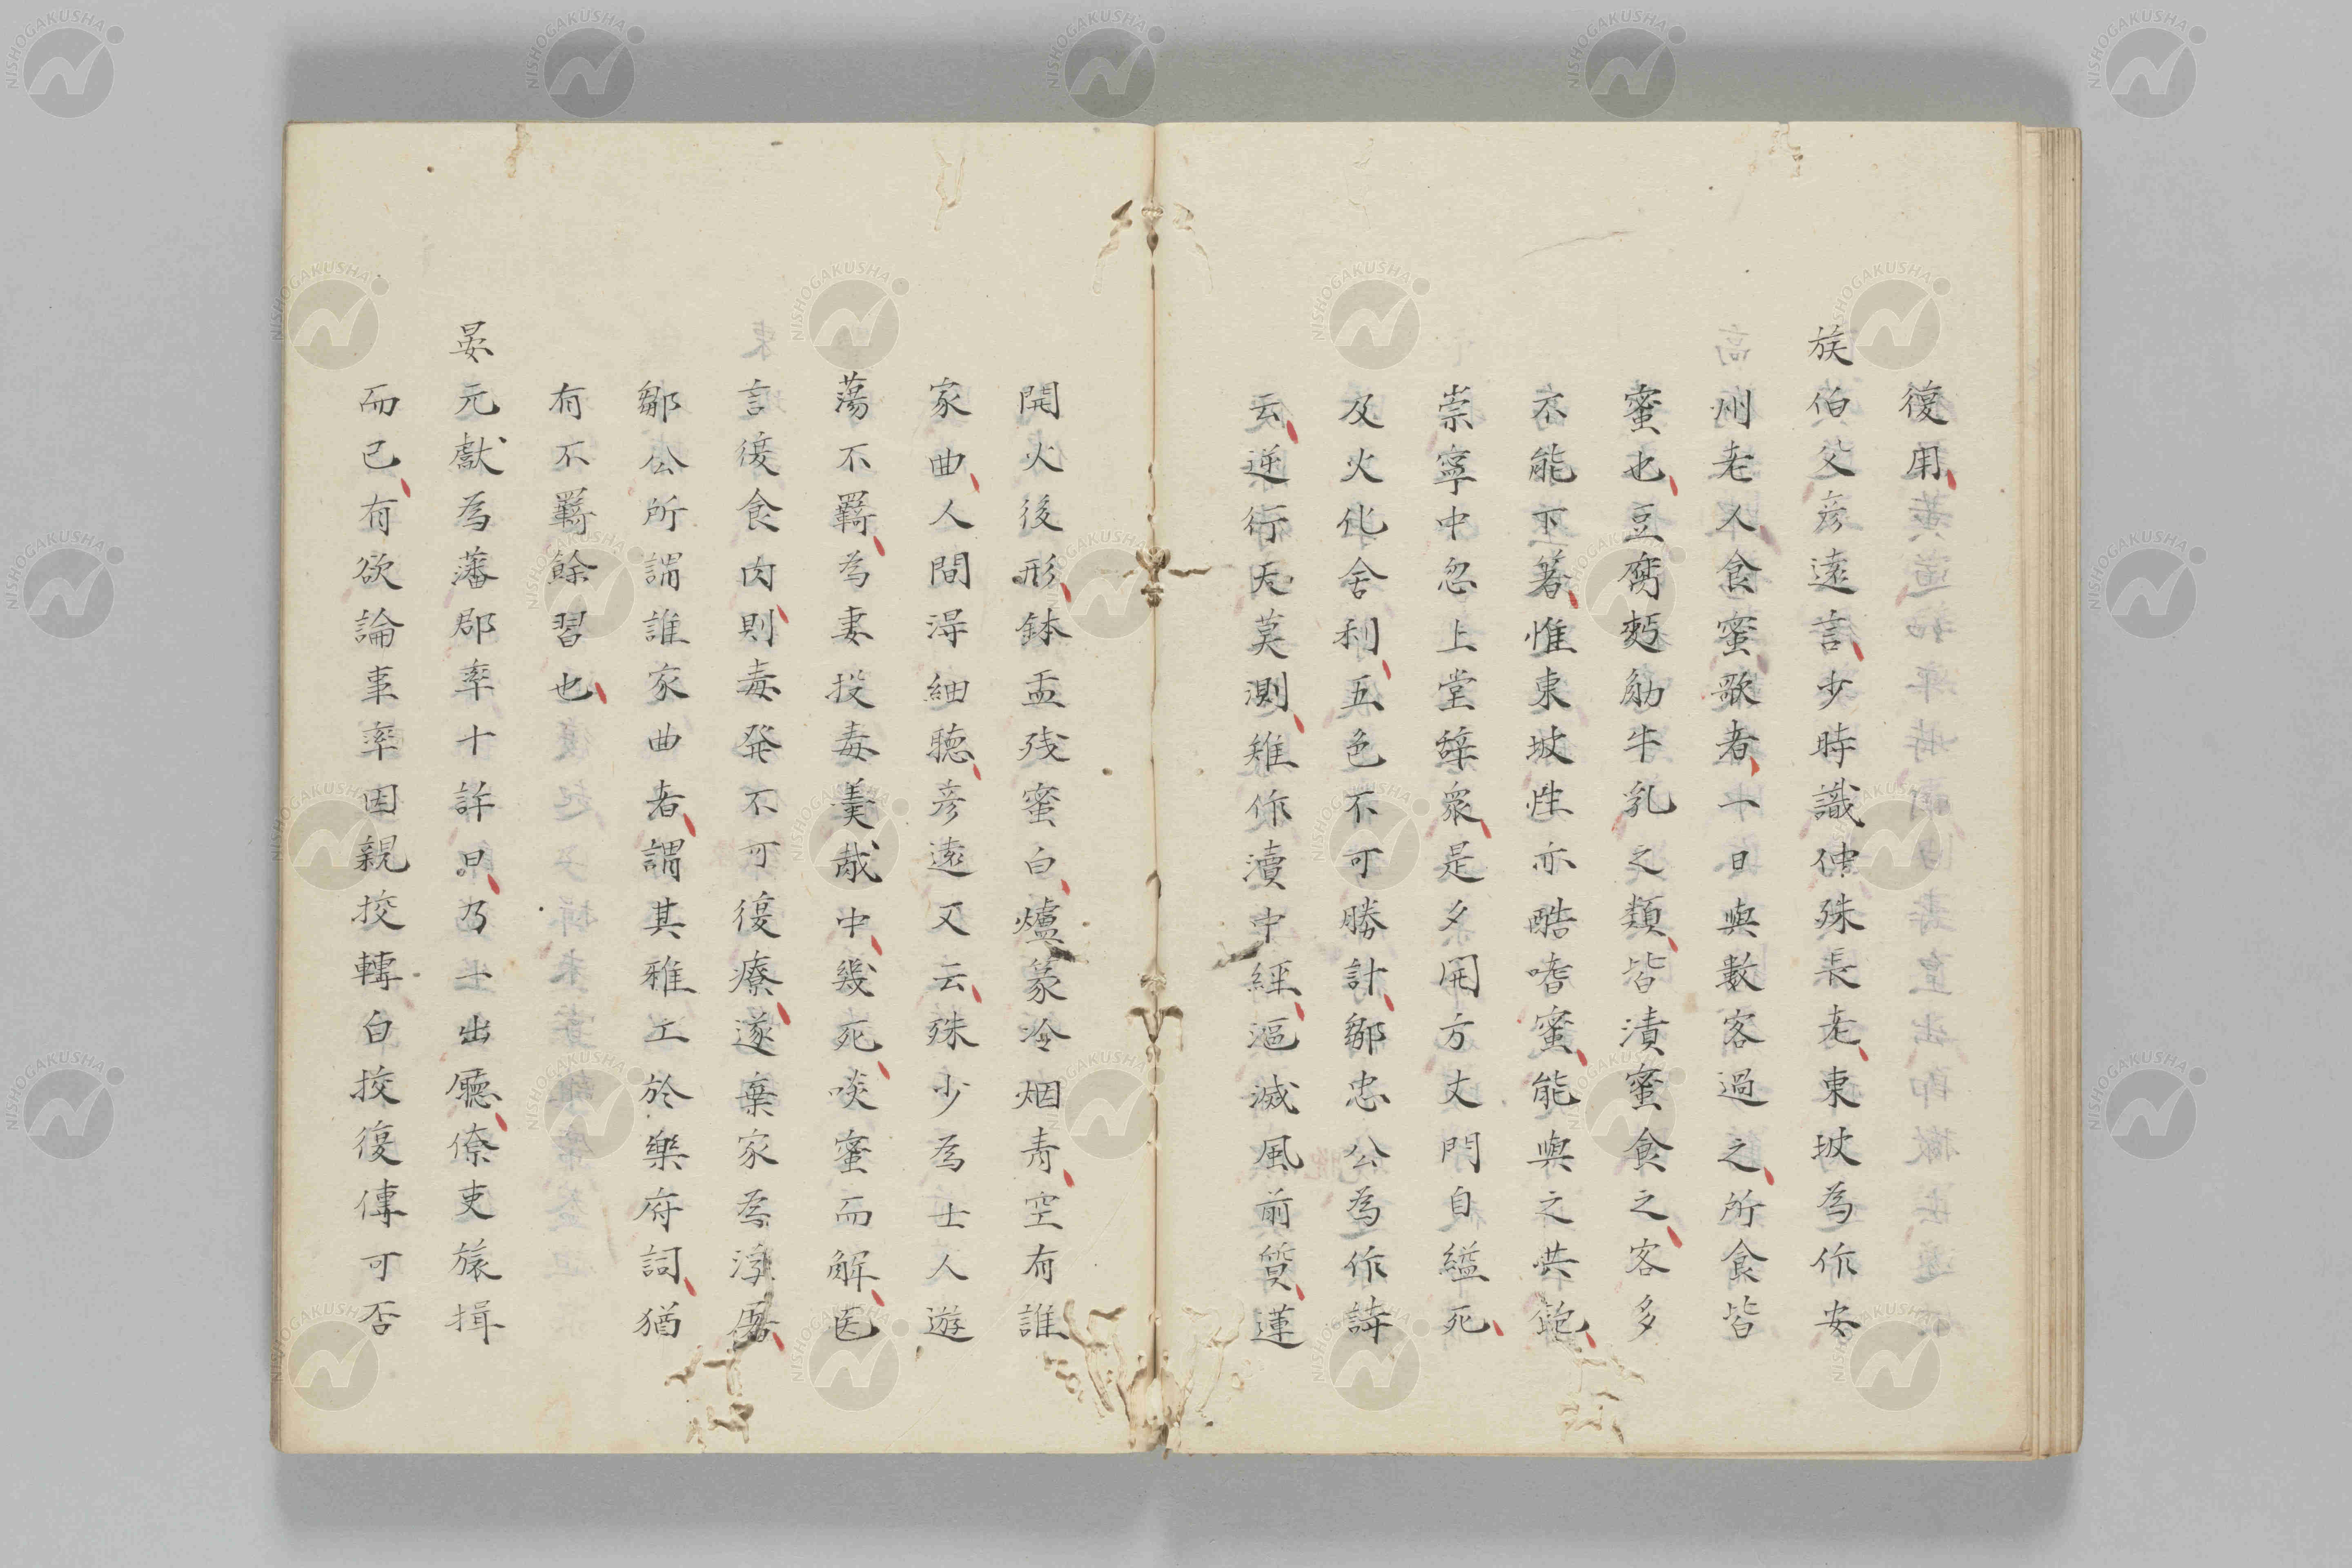 復用
族伯父彦遠言少時識仲殊長老東坡為作安
州老人食蜜歌者一日與數客過之所食皆
蜜也豆腐麪觔牛乳之類皆漬蜜食之客多
不能下箸惟東坡性亦酷嗜蜜能與之共飽
崇寧中忽上堂辤衆是夕閉方丈門自縊死
及火化舎利五色不可勝計鄒忠公為作詩
云逆行天莫測雉作瀆中經漚滅風前質蓮
開火後形鉢盂残蜜白爐篆冷烟青空有誰
家曲人間得細聴彦遠又云殊少為士人遊
蕩不羈為妻投毒羮胾中幾死啖蜜而解医
言復食肉則毒発不可復療遂棄家為浮屠
鄒公所謂誰家曲者謂其雅工於樂府詞猶
有不羈餘習也
晏元獻為藩郡率十許日乃一出廰僚吏旅揖
而已有欲論事率因親挍轉白挍復傳可否
NISHOGAKUSHA